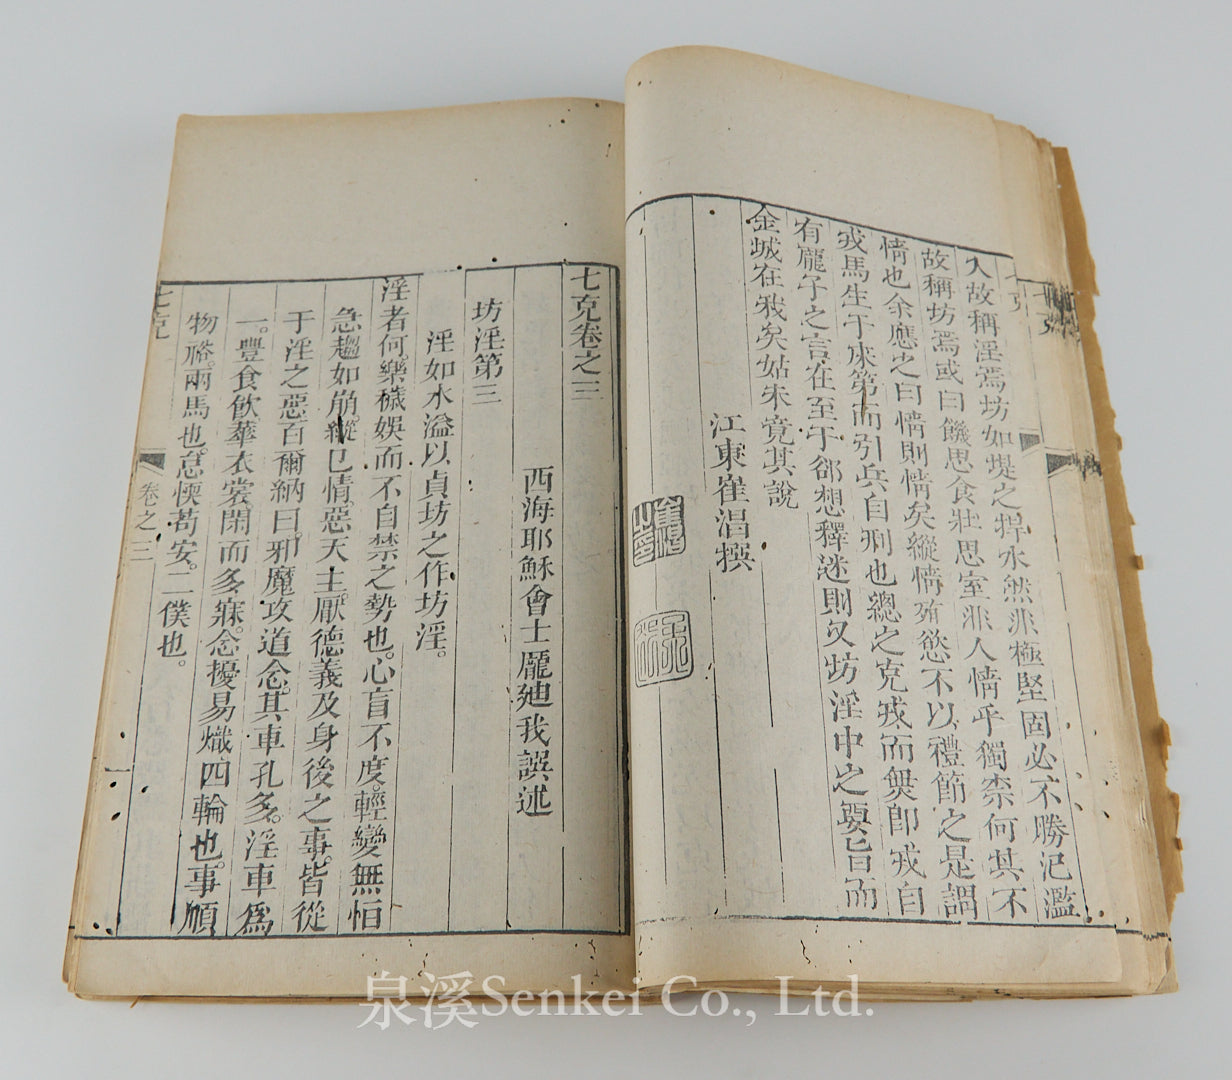 人故稱淫焉坊如堤之捍水然非極堅固必不勝氾濫
故稱坊焉或曰饑思食壯思室非人情乎獨禁何其不
情也余應之曰情則情矣縱情殉慾不以禮節之是謂
戎馬生于床第而引兵自刑也總之克戎而與卽戎自
有龐子之言在至于卻想釋迷則又坊淫中之要旨而
金城在我矣姑未竟其說
江東崔淐撰
七克卷之三
西海耶穌會士龐廸我譔述
坊淫第三
淫如水溢以貞坊之作坊淫。
淫者何。樂穢娛而不自禁之勢也。心盲不度。輕變無恒
急趨如崩。縱己情。惡天主。厭德義及身後之事。皆從
于淫之惡百爾納曰。邪魔攻道念。其車孔多。淫車爲
一。豐食飲。華衣裳。閑而多寐。念擾易熾。四輪也。事順
物裕。兩馬也。怠愞苟安。二僕也。
七克
卷之三
泉溪Senkei Co., Ltd.